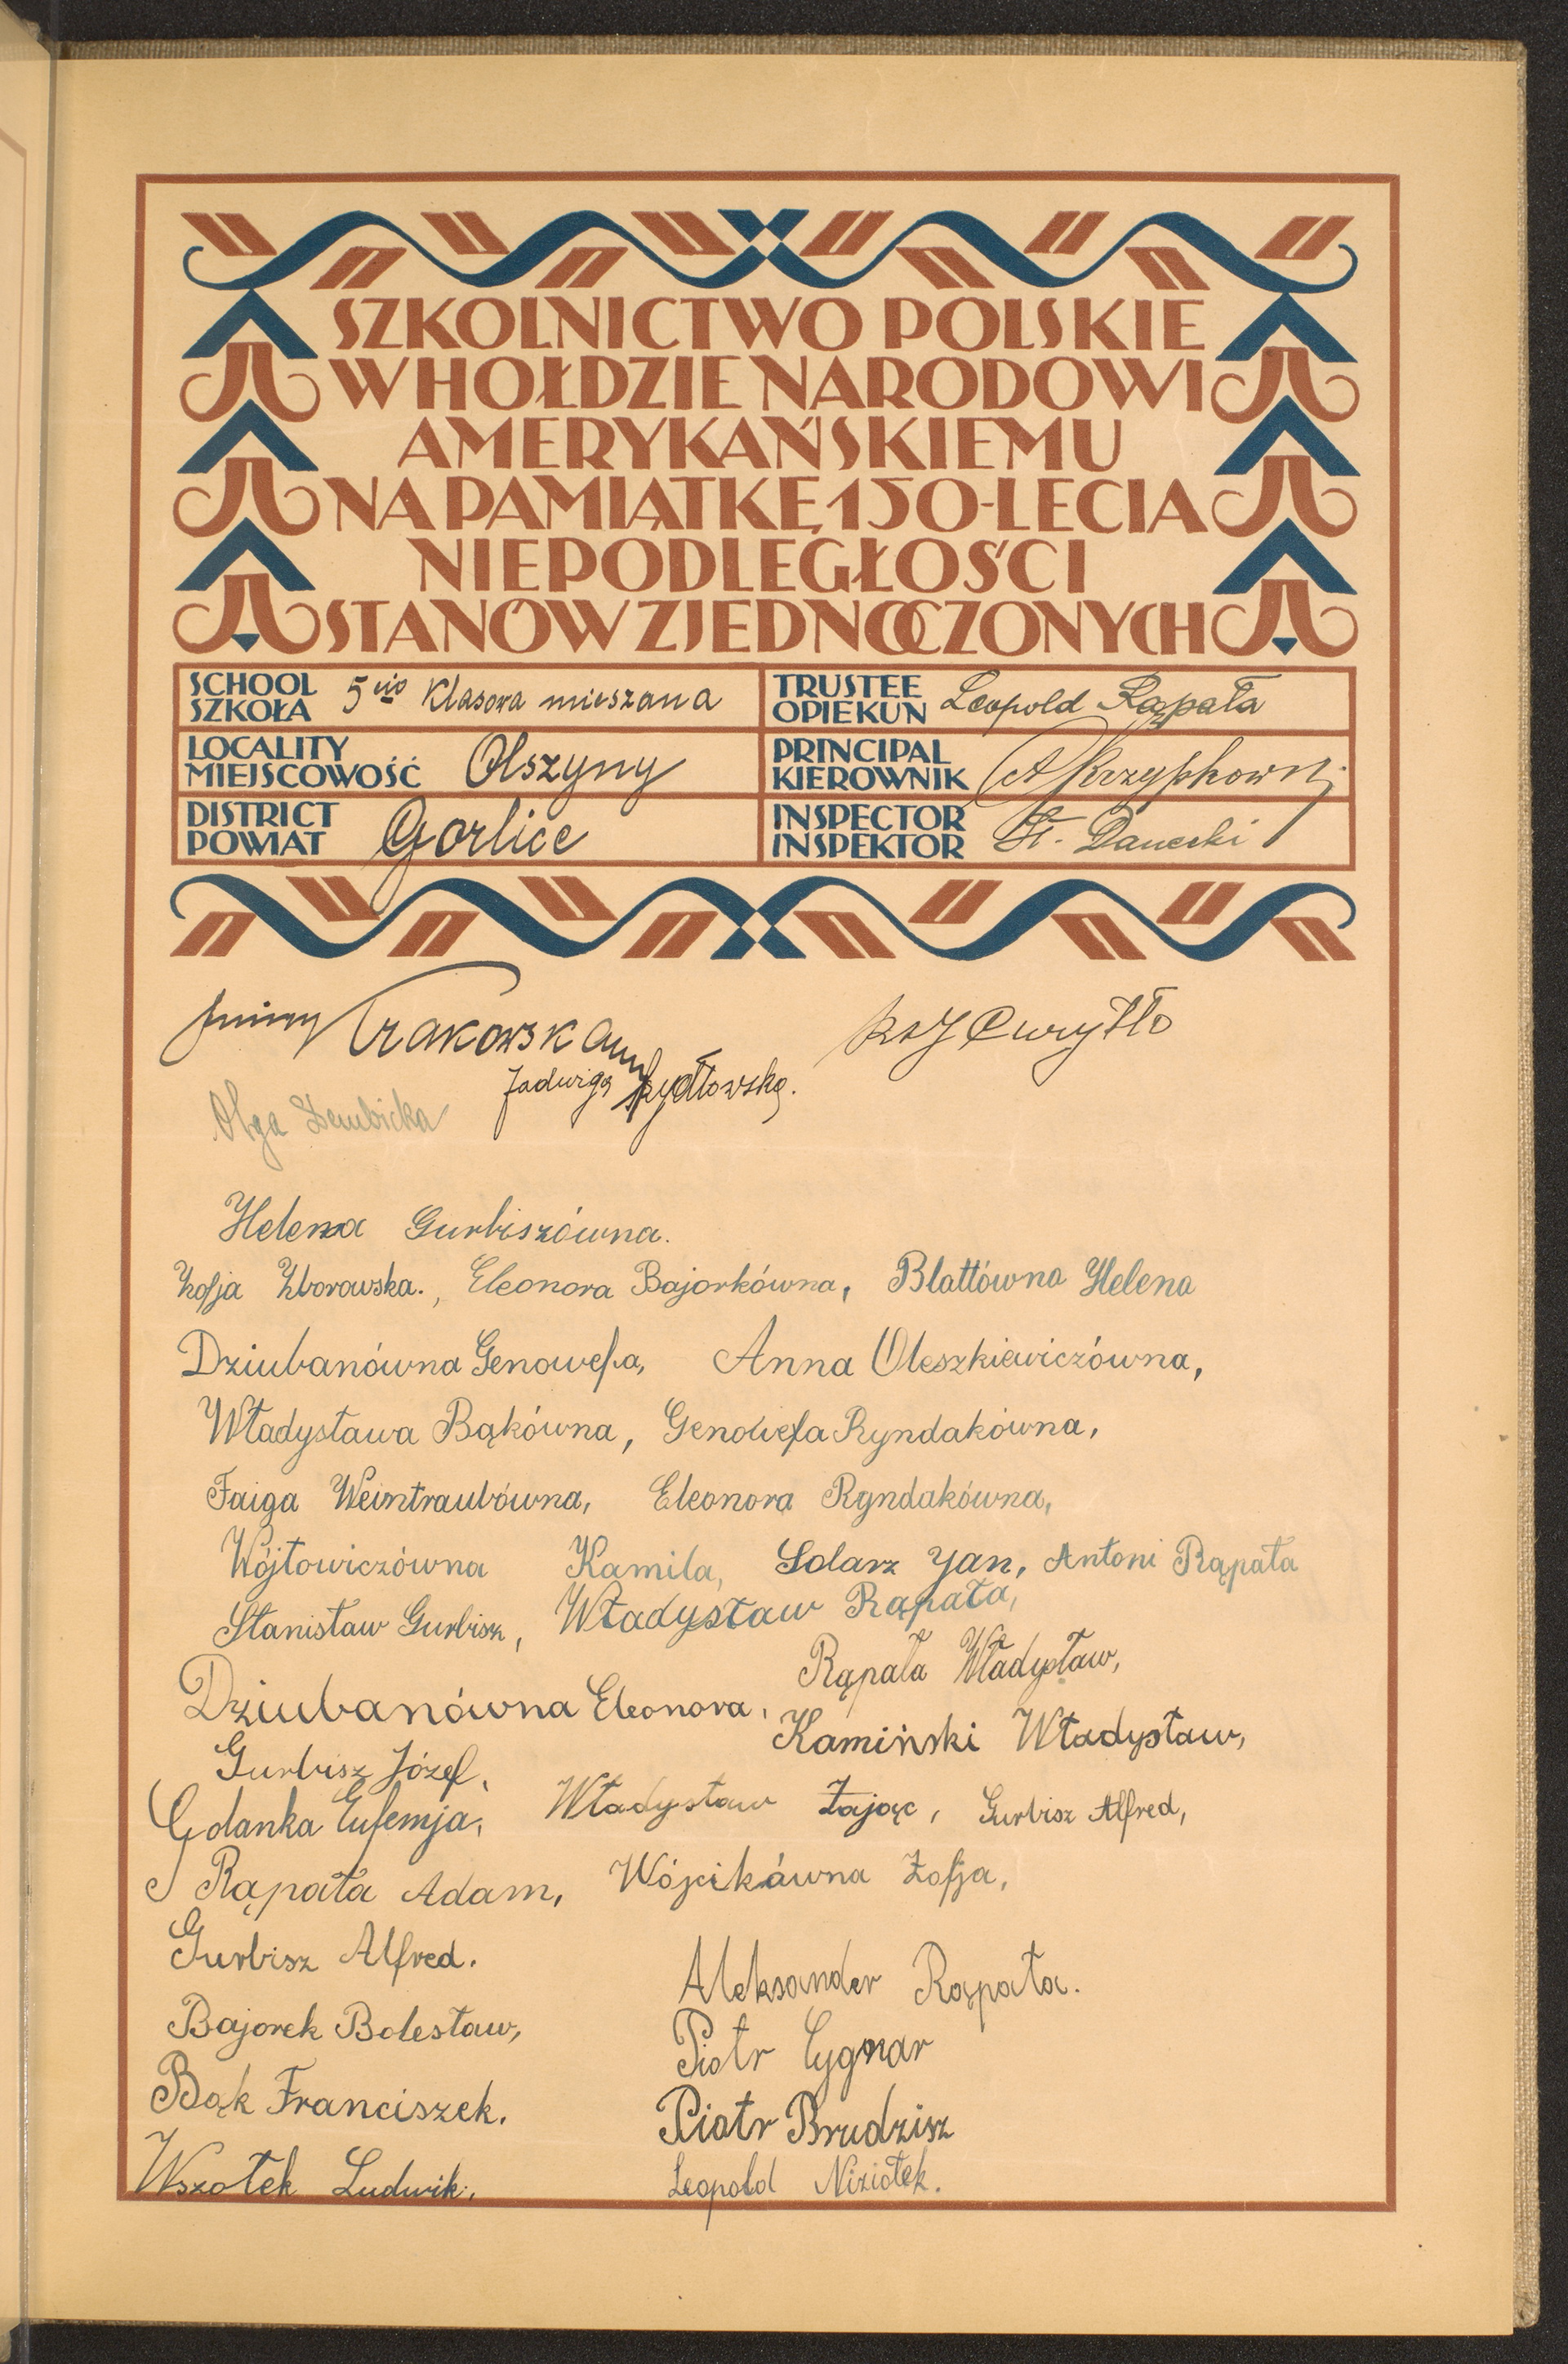 SZKOLNICTWO POLSKIE
W HOŁDZIE NARODOWI
AMERYKAŃSKIEMU
NA PAMIĄTKĘ 150-LECIA
NIEPODLEGŁOŚCI
STANÓW ZJEDNOCZONYCH
SCHOOL SZKOŁA 5cio klasowa mieszana
TRUSTEE OPIEKUN Leopold Rąpała
LOCALITY MIEJSCOWOŚĆ Olszyny
PRINCIPAL KIEROWNIK
DISTRICT POWIAT Gorlice
INSPECTOR INSPEKTOR St. Danecki
Trakowska
Jadwiga Szydłowska.
Olga Dembicka
Helena Gurbiszówna.
Zofja Zborowska., Eleonora Bajorkówna, Blattówna Helena
Dziubanówna Genowefa, Anna Oleszkiewiczówna,
Władysława Bąkówna, Genowefa Ryndakówna,
Faiga Weintraubówna, Eleonora Ryndakówna,
Wójtowiczówna Kamila, Solarz Jan, Antoni Rąpała
Stanisław Gurbisz, Władysław Rąpała,
Rąpała Władysław,
Dziubanówna Eleonora,
Kamiński Władysław,
Gurbisz Józef,
Gdanka Eufemja, Władysław Zając, Gurbisz Alfred,
Rąpała Adam, Wójcikówna Zofja,
Gurbisz Alfred.
Aleksander Rąpała.
Bajorek Bolesław,
Piotr Cygnar
Bąk Franciszek.
Piotr Brudzisz
Wszołek Ludwik.
Leopold Niziołek.